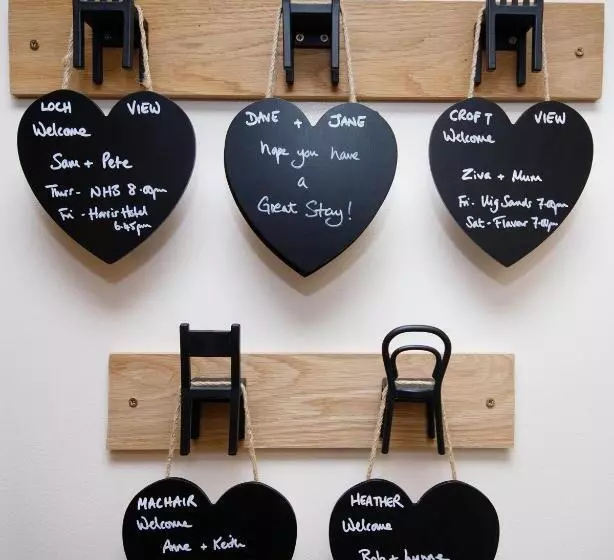 LOCH VIEW
Welcome
Sam + Pete
Thurs - NHS 8.00pm
Fri - Harris Hotel
6.45pm
DAVE + JANE
hope you have
a
Great Stay!
CROFT VIEW
Welcome
Ziva + Mum
Fri - Uig Sands 7.00pm
Sat - Flavour 7.00pm
MACHAIR
Welcome
Anne + Keith
HEATHER
Welcome
Rob + Lynne